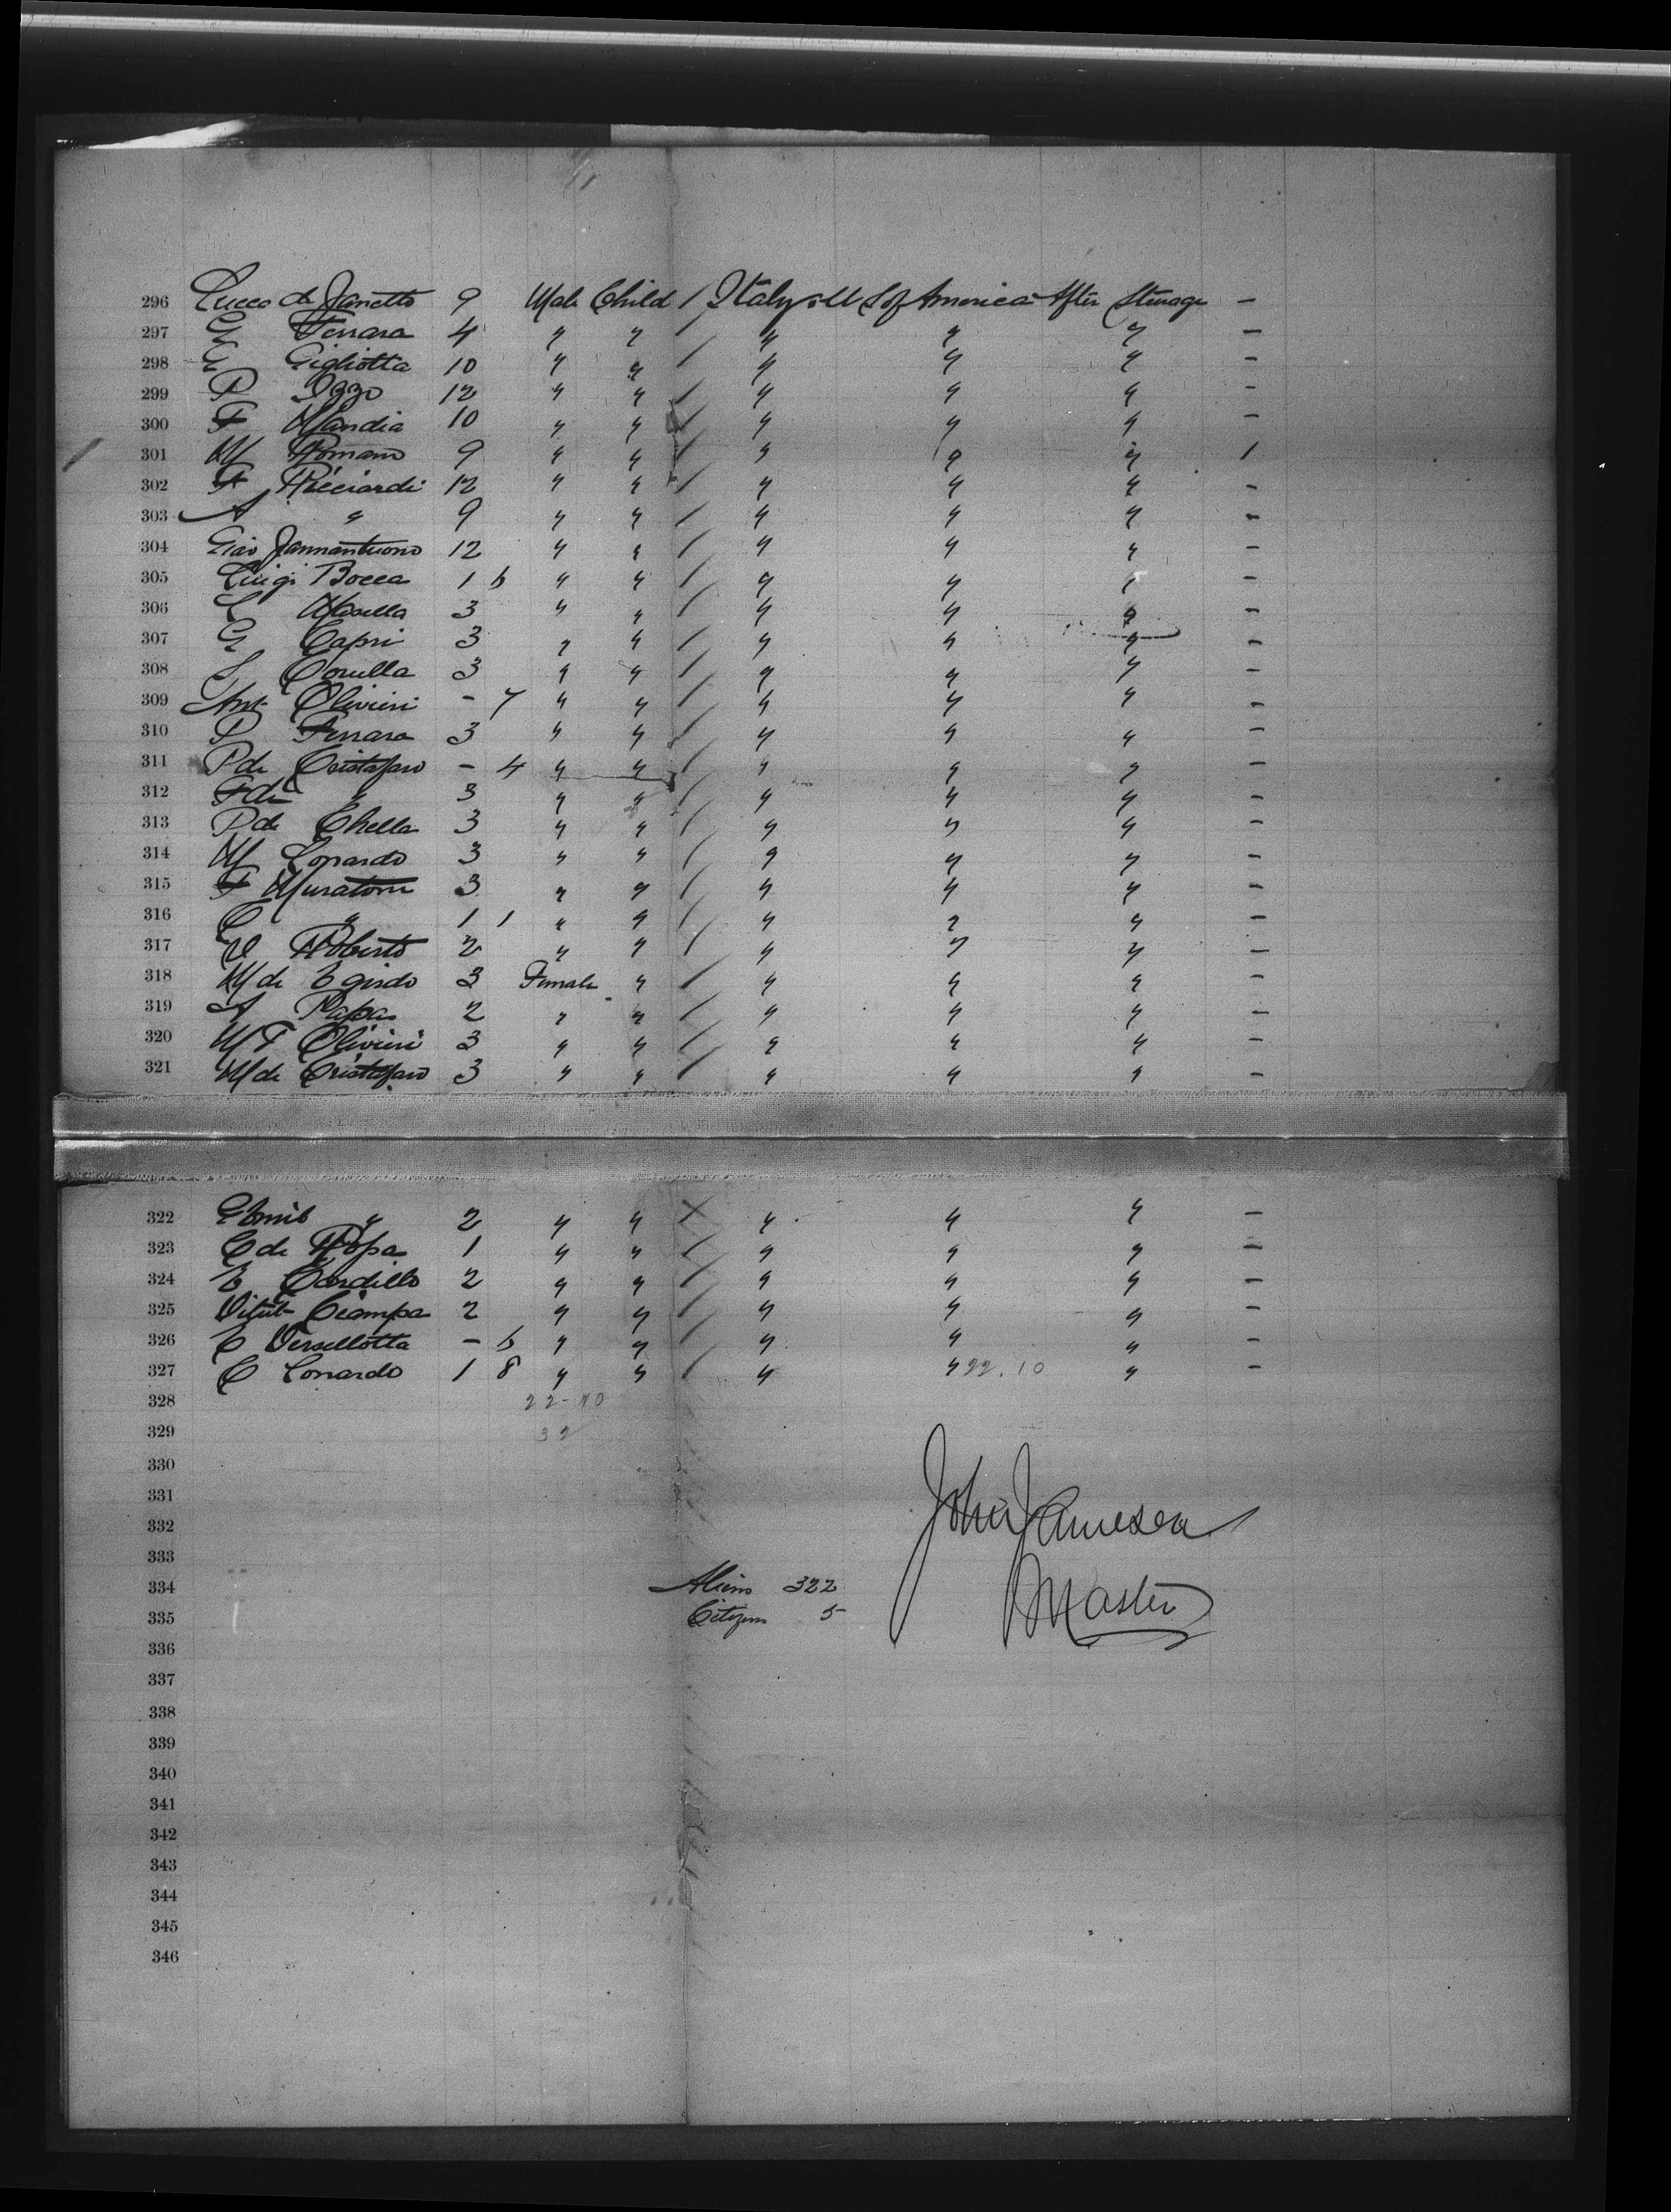 296 Lucca de Janetto 9 Male Child / Italy U S of America After Steerage -
297 G Ferrara 4 " " / " " " -
298 G Gigliotta 10 " " / " " " -
299 P Izzo 12 " " / " " " -
300 F Mandia 10 " " / " " " -
301 M Romano 9 " " / " " " 1
302 F Ricciardi 12 " " / " " " -
303 A " 9 " " / " " " -
304 Giao Jannantuono 12 " " / " " " -
305 Luigi Bocca 1 6 " " / " " " -
306 C 3 " " / " " " -
307 G Capri 3 " " / " " " -
308 S 3 " " / " " " -
309 Ant Olivieri - 7 " " / " " " -
310 P Ferrara 3 " " / " " " -
311 P de Cristofaro - 4 " " / " " " -
312 F de " 3 " " / " " " -
313 P de Chella 3 " " / " " " -
314 M Lonardo 3 " " / " " " -
315 F Muratori 3 " " / " " " -
316 C " 1 1 " " / " " " -
317 V Roberto 2 " " / " " " -
318 M de Egirdo 3 Female " / " " " -
319 A Papa 2 " " / " " " -
320 M F Olivieri 3 " " / " " " -
321 M de Cristofaro 3 " " / " " " -
322 " 2 " " X " " " -
323 C de Rosa 1 " " / " " " -
324 E Cardillo 2 " " / " " " -
325 Ciampa 2 " " / " " " -
326 C Versellotta - 6 " " / " " " -
327 C Lonardo 1 8 " " / " " 22.10 " -
328 22-10
329 32
330
331
332 John Jameson
333
334 Aliens 322 Master
335 Citizens 5
336
337
338
339
340
341
342
343
344
345
346